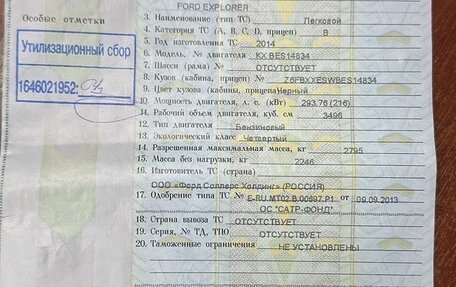 FORD EXPLORER
Особые отметки
3. Наименование (тип ТС) Легковой
4. Категория ТС (А, В, С, D, прицеп) B
5. Год изготовления ТС 2014
6. Модель, № двигателя KX BES14834
7. Шасси (рама) № ОТСУТСТВУЕТ
8. Кузов (кабина, прицеп) № Z6FBXXESWBES14834
9. Цвет кузова (кабины, прицепа) Черный
10. Мощность двигателя, л. с. (кВт) 293.76 (216)
11. Рабочий объем двигателя, куб. см 3496
12. Тип двигателя Бензиновый
13. Экологический класс Четвертый
14. Разрешенная максимальная масса, кг 2795
15. Масса без нагрузки, кг 2246
16. Изготовитель ТС (страна)
ООО «Форд Соллерс Холдинг» (РОССИЯ)
17. Одобрение типа ТС № E-RU.MT02.B.00697.P1 от 09.09.2013
ОС "САТР-ФОНД"
18. Страна вывоза ТС ОТСУТСТВУЕТ
19. Серия, № ТД, ТПО ОТСУТСТВУЕТ
20. Таможенные ограничения НЕ УСТАНОВЛЕНЫ
Утилизационный сбор
1646021952: